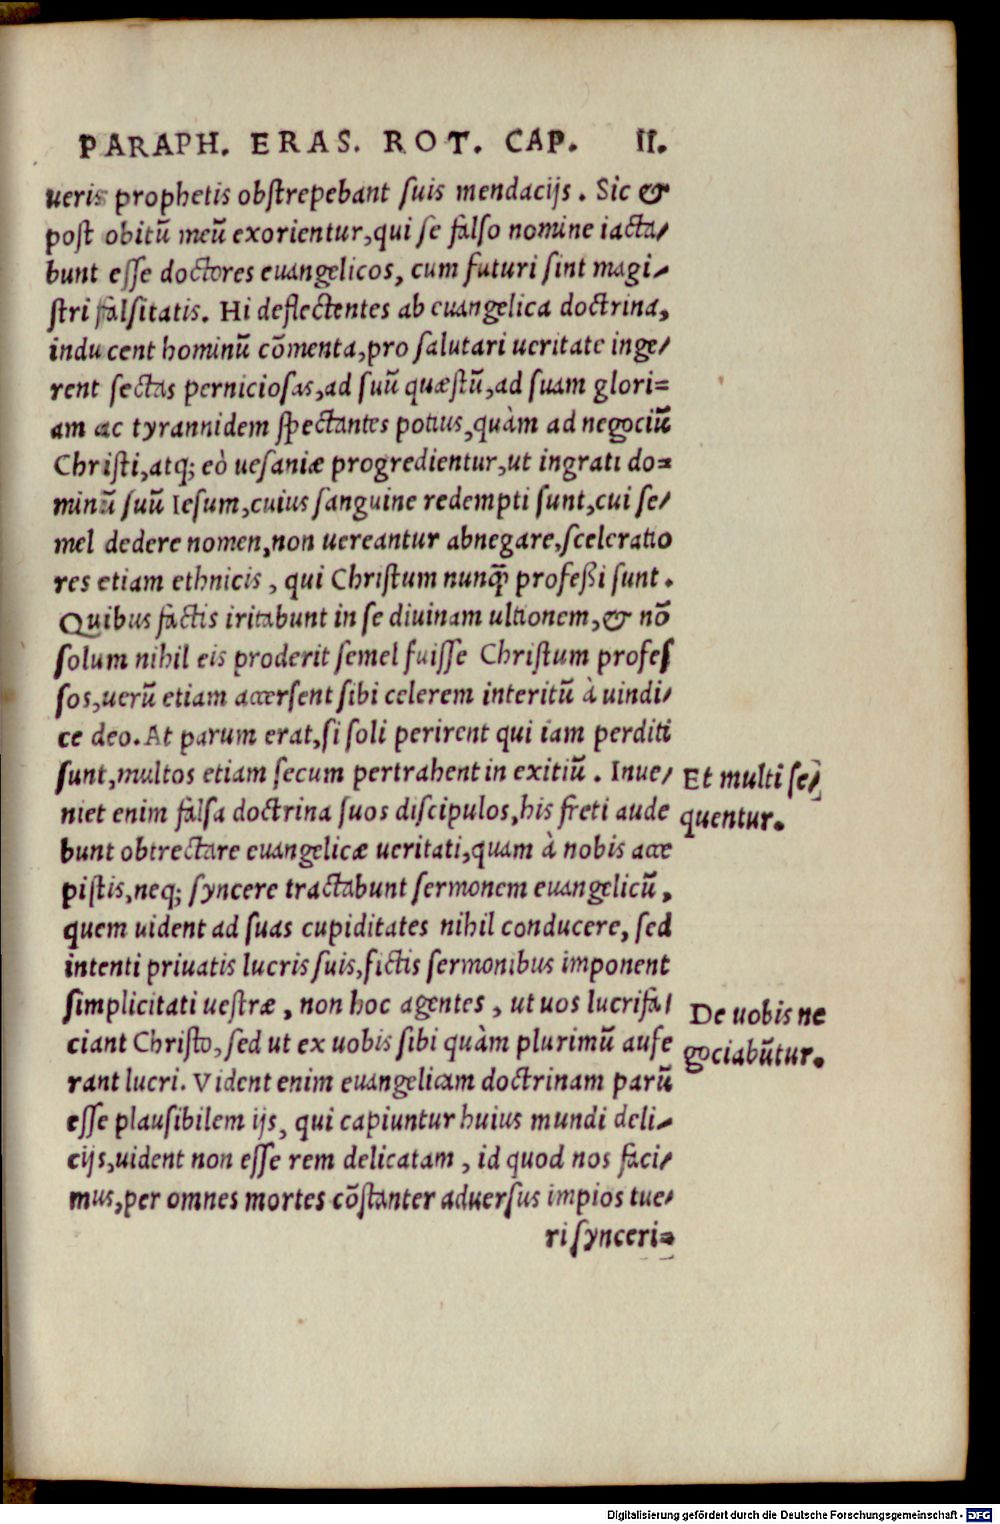 PARAPH. ERAS. ROT. CAP. II.
ueris prophetis obstrepebant suis mendacijs. Sic &
post obitũ meũ exorientur,qui se falso nomine iacta/
bunt esse doctores euangelicos, cum futuri sint magi/
stri falsitatis. Hi deflectentes ab euangelica doctrina,
inducent hominũ cõmenta,pro salutari ueritate inge/
rent sectas perniciosas,ad suũ quæstũ,ad suam glori=
am ac tyrannidem spectantes potius,quàm ad negociũ
Christi,atq; eò uesaniæ progredientur,ut ingrati do=
minũ suũ Iesum,cuius sanguine redempti sunt,cui se/
mel dedere nomen,non uereantur abnegare,sceleratio
res etiam ethnicis, qui Christum nunq̃ professi sunt.
Quibus factis iritabunt in se diuinam ultionem,& nõ
solum nihil eis proderit semel fuisse Christum profes
sos,uerũ etiam accersent sibi celerem interitũ à uindi/
ce deo. At parum erat,si soli perirent qui iam perditi
sunt,multos etiam secum pertrahent in exitiũ. Inue/
Et multi se/
niet enim falsa doctrina suos discipulos,his freti aude
quentur.
bunt obtrectare euangelicæ ueritati,quam à nobis acce
pistis,neq; syncere tractabunt sermonem euangelicũ,
quem uident ad suas cupiditates nihil conducere, sed
intenti priuatis lucris suis,fictis sermonibus imponent
simplicitati uestræ, non hoc agentes, ut uos lucrifa/
De uobis ne
ciant Christo,sed ut ex uobis sibi quàm plurimũ aufe
gociabũtur.
rant lucri. Vident enim euangelicam doctrinam parũ
esse plausibilem ijs, qui capiuntur huius mundi deli/
cijs,uident non esse rem delicatam, id quod nos faci/
mus,per omnes mortes cõstanter aduersus impios tue/
ri synceri=
Digitalisierung gefördert durch die Deutsche Forschungsgemeinschaft - DFG